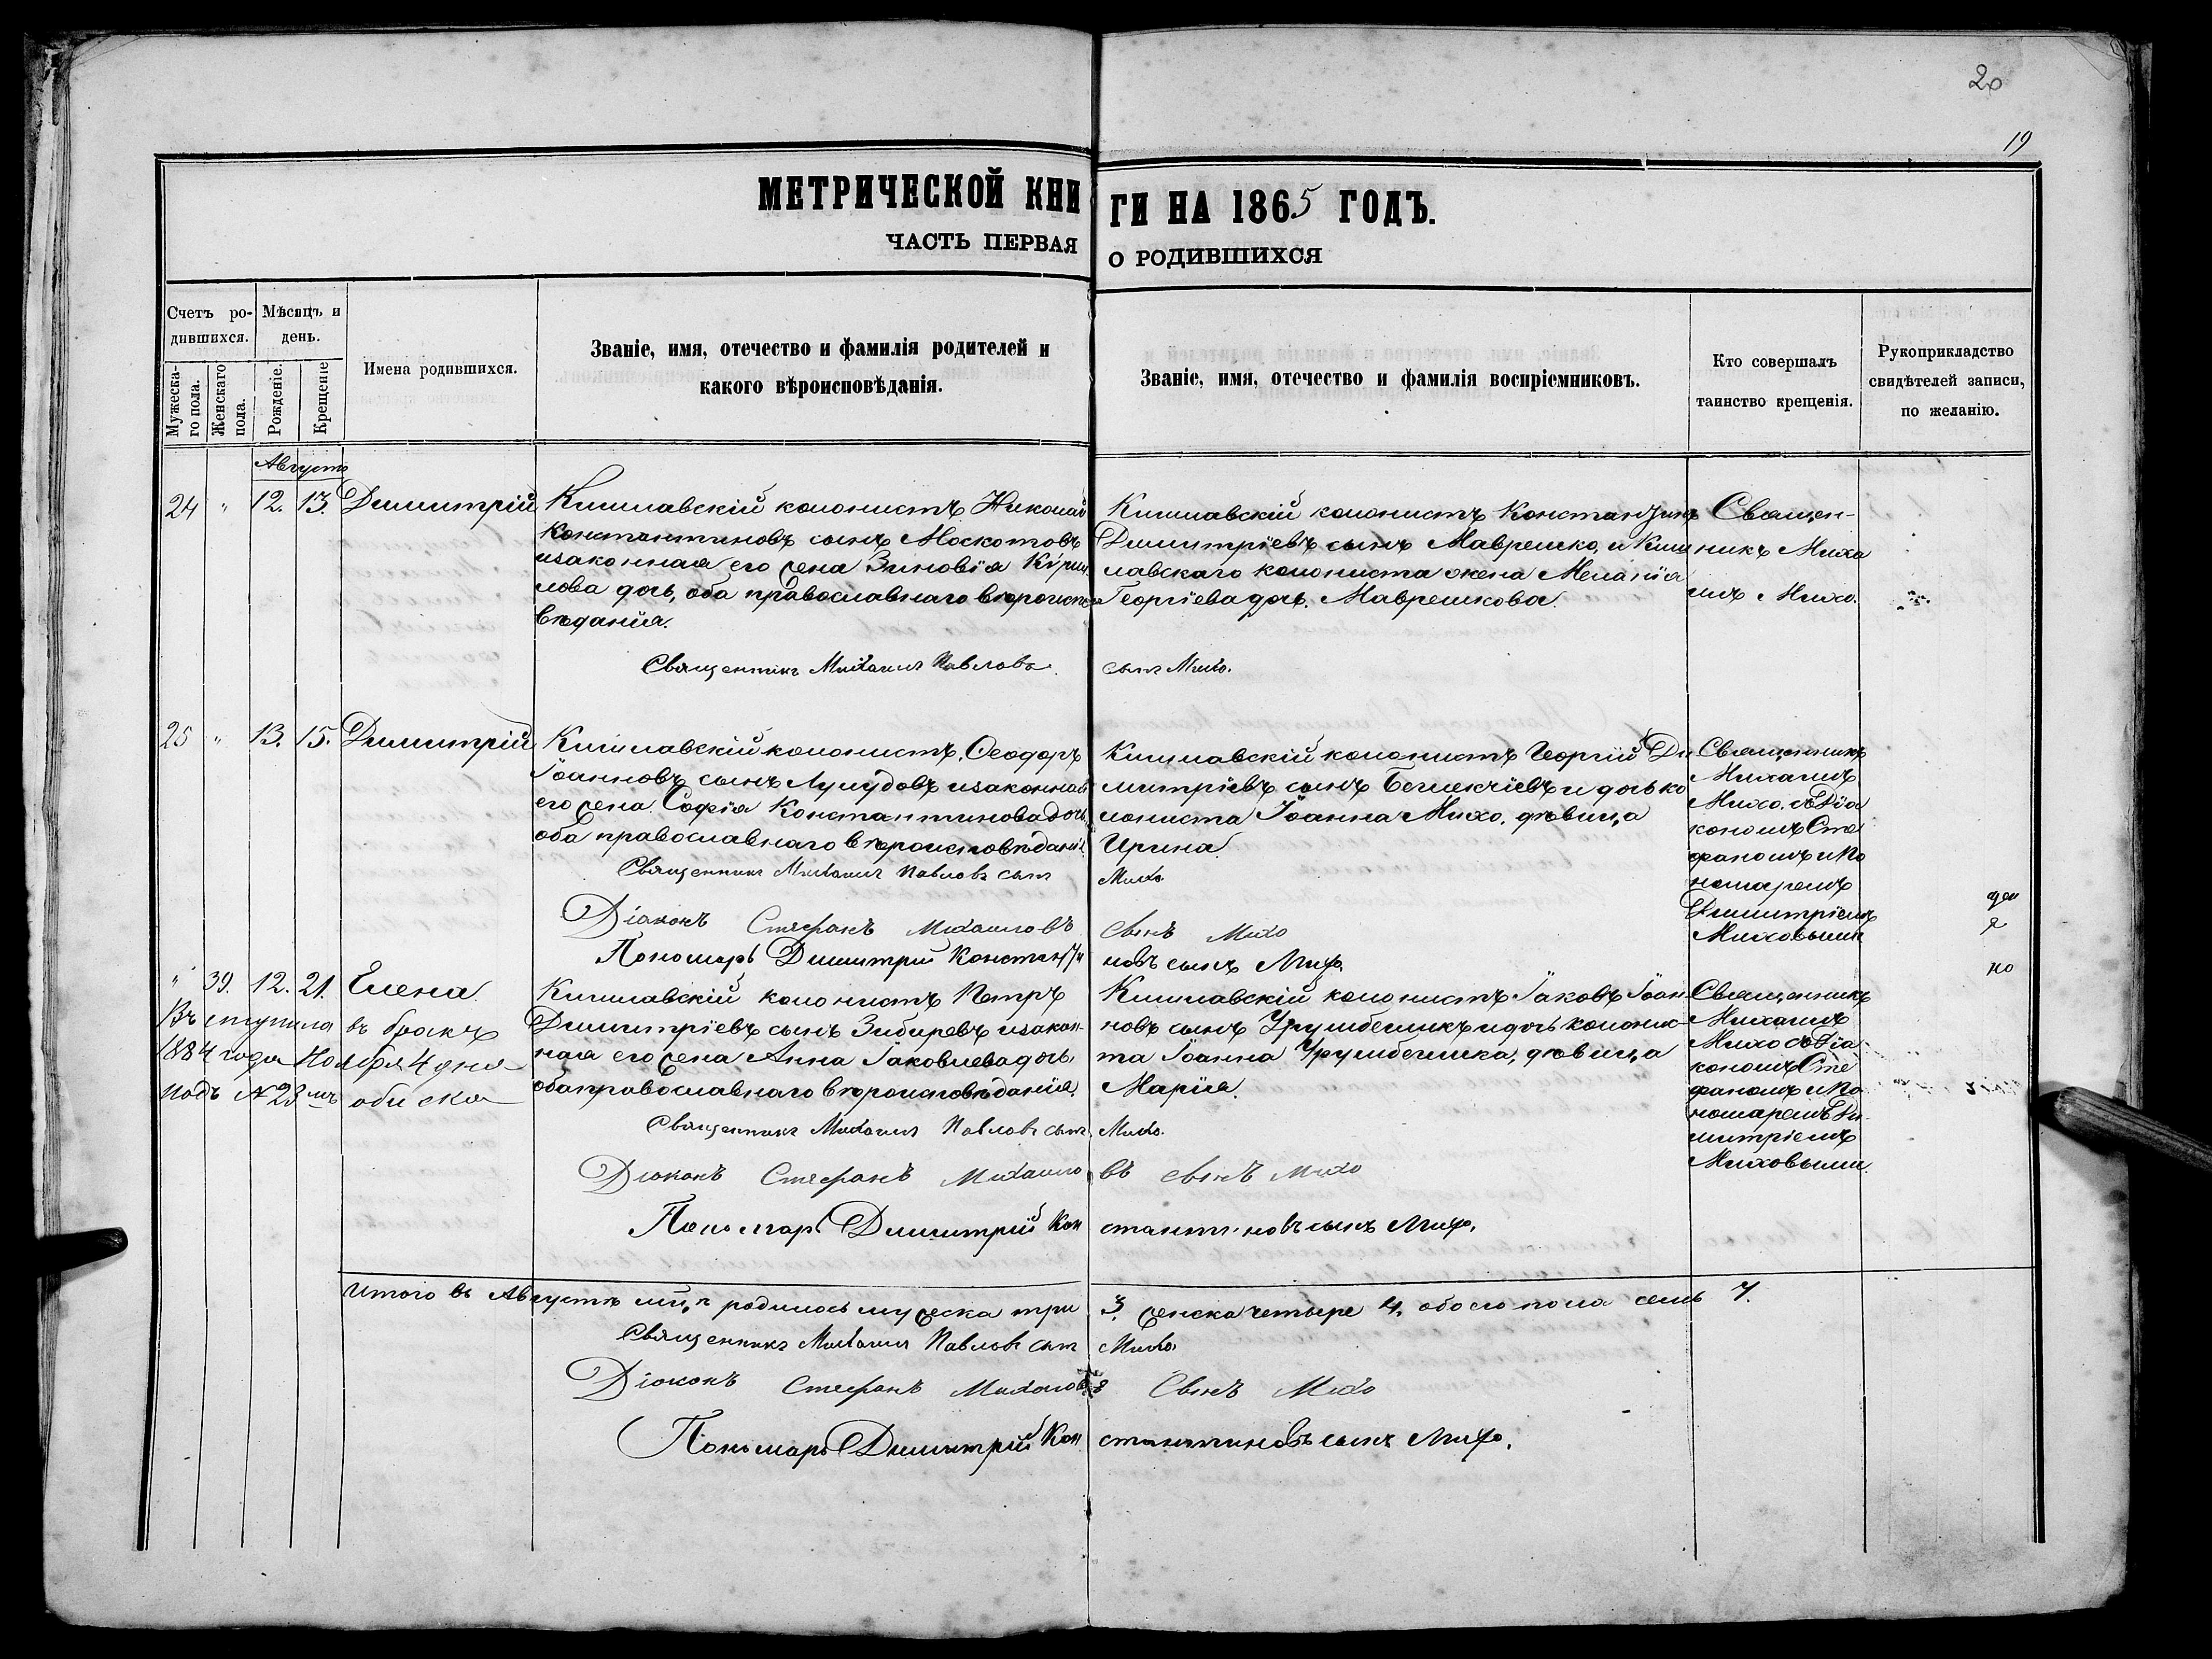 20
19
МЕТРИЧЕСКОЙ КНИГИ НА 1865 ГОДЪ.
ЧАСТЬ ПЕРВАЯ О РОДИВШИХСЯ
Счетъ ро-
дившихся.
Мужеска-
го пола.
Женскаго
пола.
Мѣсяцъ и
день.
Рожденіе.
Крещеніе
Имена родившихся.
Званіе, имя, отечество и фамилія родителей и
какого вѣроисповѣданія.
Званіе, имя, отечество и фамилія воспріемниковъ.
Кто совершалъ
таинство крещенія.
Рукоприкладство
свидѣтелей записи,
по желанію.
Августъ
24 " 12. 13. Димитрій
Кишлавскій колонистъ Николай
Константиновъ сынъ Москотовъ
изаконная его жена Зиновія Кірил
лова дочь, оба православнаго вѣроиспо
вѣданія.
Священникъ Михаилъ Павловъ
Кишлавскій колонистъ Константинъ
Димитріевъ сынъ Маврешко, и Киш
лавскаго колониста жена Меланія
Георгіева дочь Маврешкова.
сынъ Михо.
Священ-
никъ Миха
илъ Михо.
25 " 13. 15. Димитрій
Кишлавскій колонистъ Ѳеодоръ
Іоанновъ сынъ изаконная
его жена Софія Константинова дочь
оба православнаго вѣроисповѣданія.
Священникъ Михаилъ Павловъ сынъ
Діаконъ Стефанъ Михаиловъ
Пономарь Димитрій Константи
Кишлавскій колонистъ Георгій Ди
митріевъ сынъ Беглекчіевъ и дочь ко
лониста Іоанна Михо, дѣвица
Ирина.
Михо
сынъ Михо
новъ сынъ Михо.
Священникъ
Михаилъ
Михо. съ Діа
кономъ Сте
фаномъ и По
номаремъ
Димитріемъ
Миховыми
" 39. 12. 21. Елена.
Вступила въ бракъ
1884 года Ноября 4 дня
подъ № 23 мъ обиска
Кишлавскій колонистъ Петръ
Димитріевъ сынъ Зибиревъ изакон-
ная его жена Анна Іаковлева дочь
оба православнаго вѣроисповѣданія.
Священникъ Михаилъ Павловъ сынъ
Діаконъ Стефанъ Михаило
Пономарь Димитрій Кон
Кишлавскій колонистъ Іаковъ Іоан
новъ сынъ Урумбегликъ и дочь колонис-
та Іоанна Урумбеглика, дѣвица
Марія.
Михо.
въ сынъ Михо
стантиновъ сынъ Михо.
Священникъ
Михаилъ
Михо съ Діа
кономъ Сте
фаномъ и По
номаремъ Ди
митріемъ
Миховыми.
Итого въ Августѣ м-цѣ родилось мужеска три 3. женска четыре 4. обоего пола семь 7.
Священникъ Михаилъ Павловъ сынъ Михо
Діаконъ Стефанъ Михаловъ Сынъ Михо
Пономарь Димитрій Константиновъ сынъ Михо.